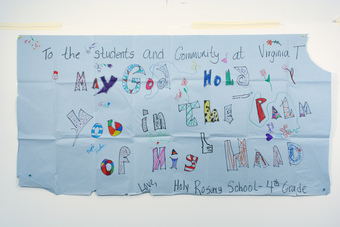 To the students and Community at Virginia T
May God Hold
You in the Palm
Of His Hand
Love, Holy Rosary School - 4th Grade